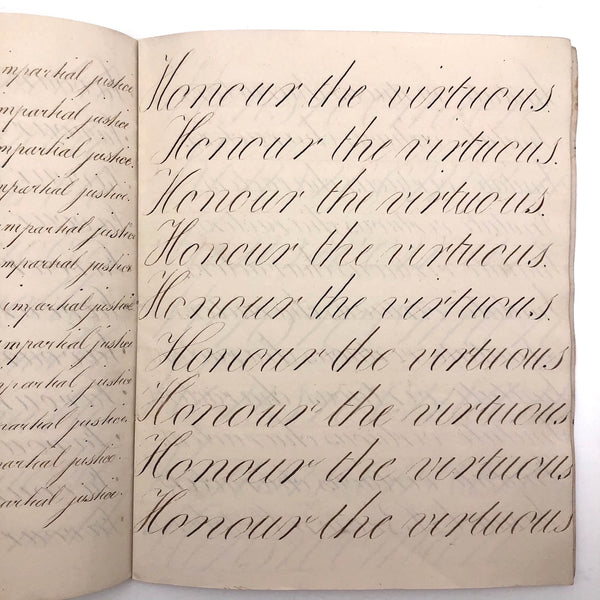 impartial justice
impartial justice
impartial justice.
impartial justice.
impartial justice
impartial justice
impartial justice
impartial justice
impartial justice
impartial justice.
impartial justice.
impartial justice.
Honour the virtuous.
Honour the virtuous.
Honour the virtuous.
Honour the virtuous.
Honour the virtuous.
Honour the virtuous
Honour the virtuous
Honour the virtuous
Honour the virtuous